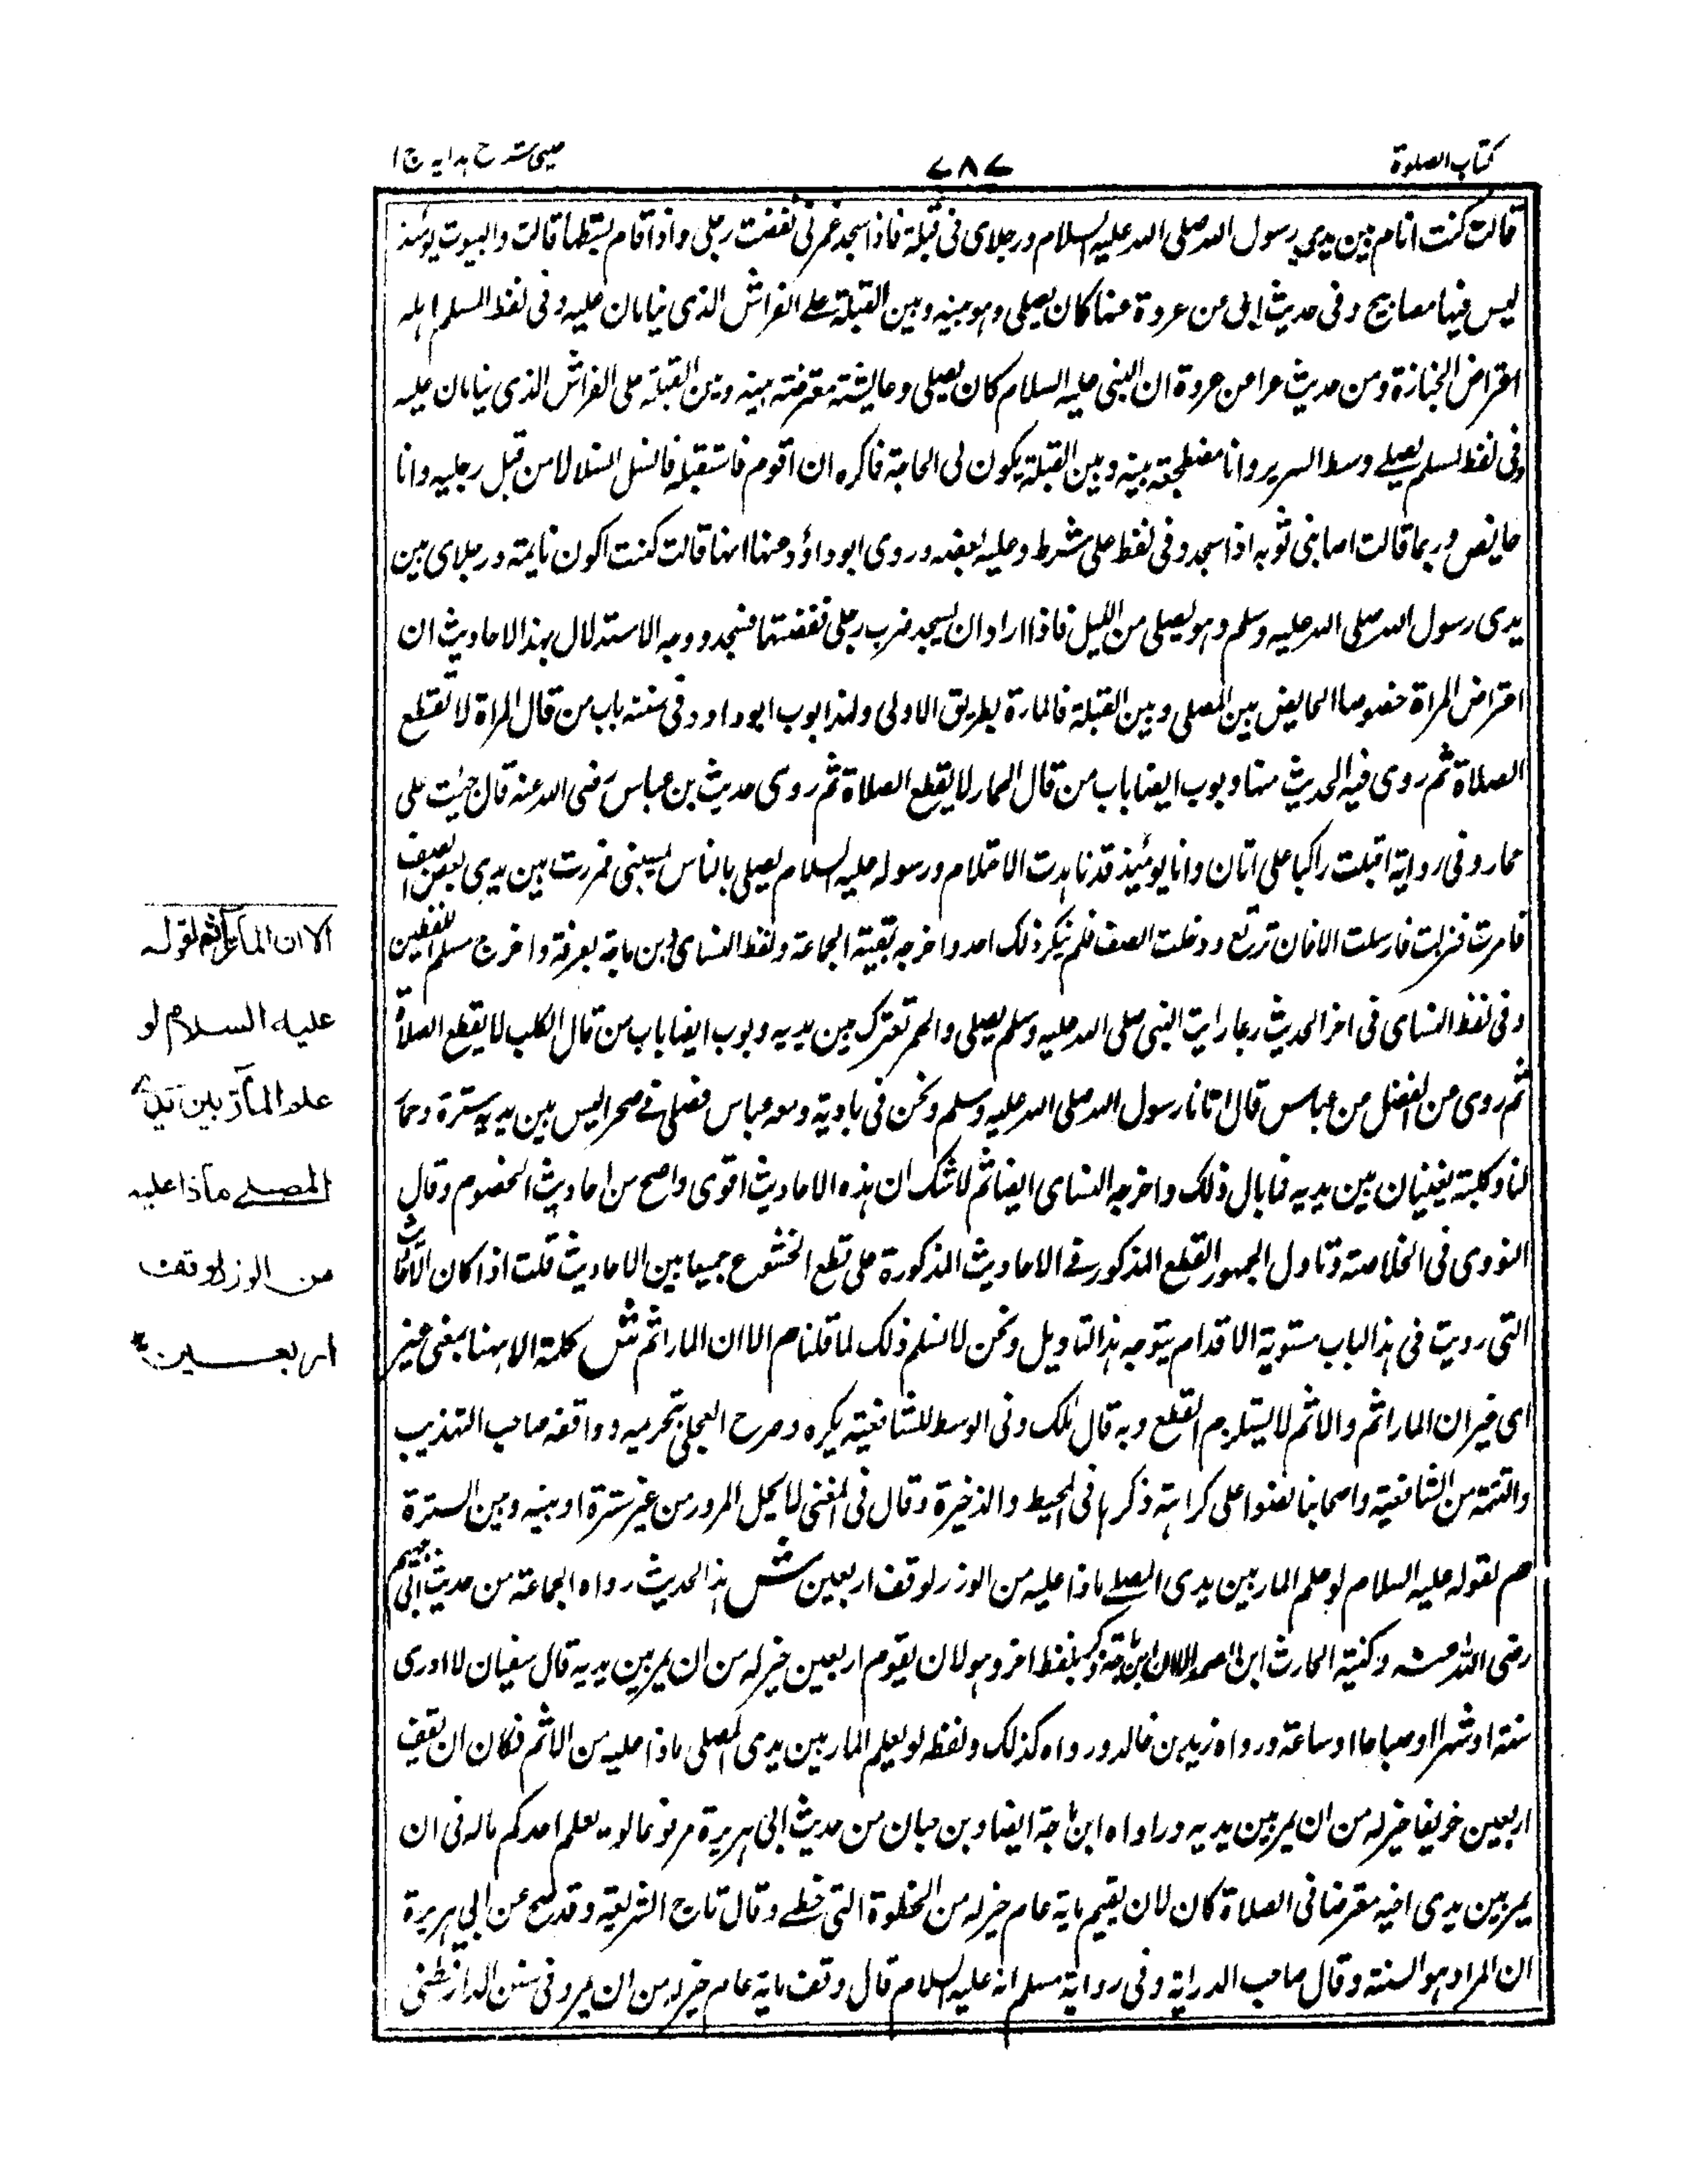 كتاب الصلوة
٧٨٧
عینی شرح ہدایہ ج ا
قالت كنت انام بين يدي رسول الله صلى الله عليه السلام ورجلاى فى قبلة فاذا سجد غمزنى نقضت رجلى واذا قام بسطها قالت والبيوت يومئذ
ليس فيها مصابيح وفى حديث ابى من عروة عنها كان يصلى وهو بينه وبين القبلة على الفراش الذى ينامان عليه وفى لفظ المسلم اهله
اعتراض الجنازة ومن حديث عرا من عروة ان النبى عليه السلام كان يصلى وعايشة معترضة بينه وبين القبلة على الفراش الذى ينامان عليه
وفى لفظ لمسلم يصلى وسط السرير وانا مضطجعة بينه وبين القبلة يكون لى الحاجة فاكره ان اقوم فاستقبله فانسل انسلالا من قبل رجليه وانا
حايض وربما قالت اصابنى ثوبه اذا سجد وفى لفظ على شرط وعليه بعضه وروى ابو داؤد عنها انها قالت كنت اكون نايمة ورجلاى بين
يدى رسول الله صلى الله عليه وسلم وهو يصلى من الليل فاذا اراد ان يسجد ضرب رجلى فقضتها فسجد ووجه الاستدلال بهذا الاحاديث ان
اعتراض المراة خصوصا الحايض بين المصلى وبين القبلة فالمارة بطريق الاولى ولهذا بوب ابو داود فى سننه باب من قال المراة لا تقطع
الصلاة ثم روى فيه الحديث منها وبوب ايضا باب من قال الحمار لا يقطع الصلاة ثم روى حديث بن عباس رضى الله عنه قال جئت على
حمار وفى رواية اقبلت راكبا على اتان وانا يومئذ قد ناهزت الاحتلام ورسوله عليه السلام يصلى بالناس بمنى فمررت بين يدى بعض الصف
فامرت فنزلت فارسلت الاتان ترتع ودخلت الصف فلم ينكر ذلك احد واخرجه بقية الجماعة ولفظ النساى وبن ماجة بعرفة واخرج مسلم اللفظين
وفى لفظ النساى فى اخر الحديث رعا رايت النبى صلى الله عليه وسلم يصلى والحمر تعترك بين يديه وبوب ايضا باب من قال الكلب لا يقطع الصلاة
ثم روى من الفضل من عباس قال اتانا رسول الله صلى الله عليه وسلم ونحن فى بادية ومعه عباس فصلى فى صحرا ليس بين يديه سترة وحمار
لنا وكلبة يعبثان بين يديه فما بال ذلك واخرجه النساى ايضا ثم لا شك ان هذه الاحاديث اقوى واصح من احاديث الخصوم وقال
النووى فى الخلاصة وتاول الجمهور القطع المذكور فى الاحاديث المذكورة على قطع الخشوع جميعا بين الاحاديث قلت اذا كان الاحاديث
التى رويت فى هذا الباب مستوية الاقدام يتوجه هذا التاويل ونحن لا نسلم ذلك لما قلنا م الا ان المار اثم ش كلمة الا ههنا بمعنى غير
اى غير ان المار اثم والاثم لا يستلزم القطع وبه قال مالك وفى الوسط للشافعية يكره وصرح العجلى بتحريمه ووافقه صاحب التهذيب
والتتمة من الشافعية واصحابنا نصوا على كراهته ذكرها فى المحيط والذخيرة وقال فى المغنى لا يحل المرور من غير سترة او بينه وبين السترة
م لقوله عليه السلام لو علم المار بين يدى المصلى ماذا عليه من الوزر لوقف اربعين ش هذا الحديث رواه الجماعة من حديث ابى جهيم
رضى الله عنه وكنيته الحارث ابن الصمة بلفظ اخر وهو لان يقوم اربعين خير له من ان يمر بين يديه قال سفيان لا ادرى
سنة او شهرا او صباحا او ساعة ورواه زيد بن خالد ورواه كذلك ولفظه لو يعلم المار بين يدى المصلى ماذا عليه من الاثم فكان ان يقف
اربعين خريفا خير له من ان يمر بين يديه ورواه ابن ماجة ايضا وبن حبان من حديث ابى هريرة مرفوعا لو يعلم احدكم ماله فى ان
يمر بين يدى اخيه معترضا فى الصلاة كان لان يقيم ماية عام خير له من الخطوة التى خطى وقال تاج الشريعة وقد صح عن ابى هريرة
ان المراد هو السنة وقال صاحب الدراية وفى رواية مسلم انه عليه السلام قال وقف ماية عام خير له من ان يمر وفى سنن الدارقطنى
الا ان المآرّ اثم لقوله
عليه السلام لو
علم المآرّ بين يدي
المصلے ماذا عليه
من الوزر لوقف
اربعين